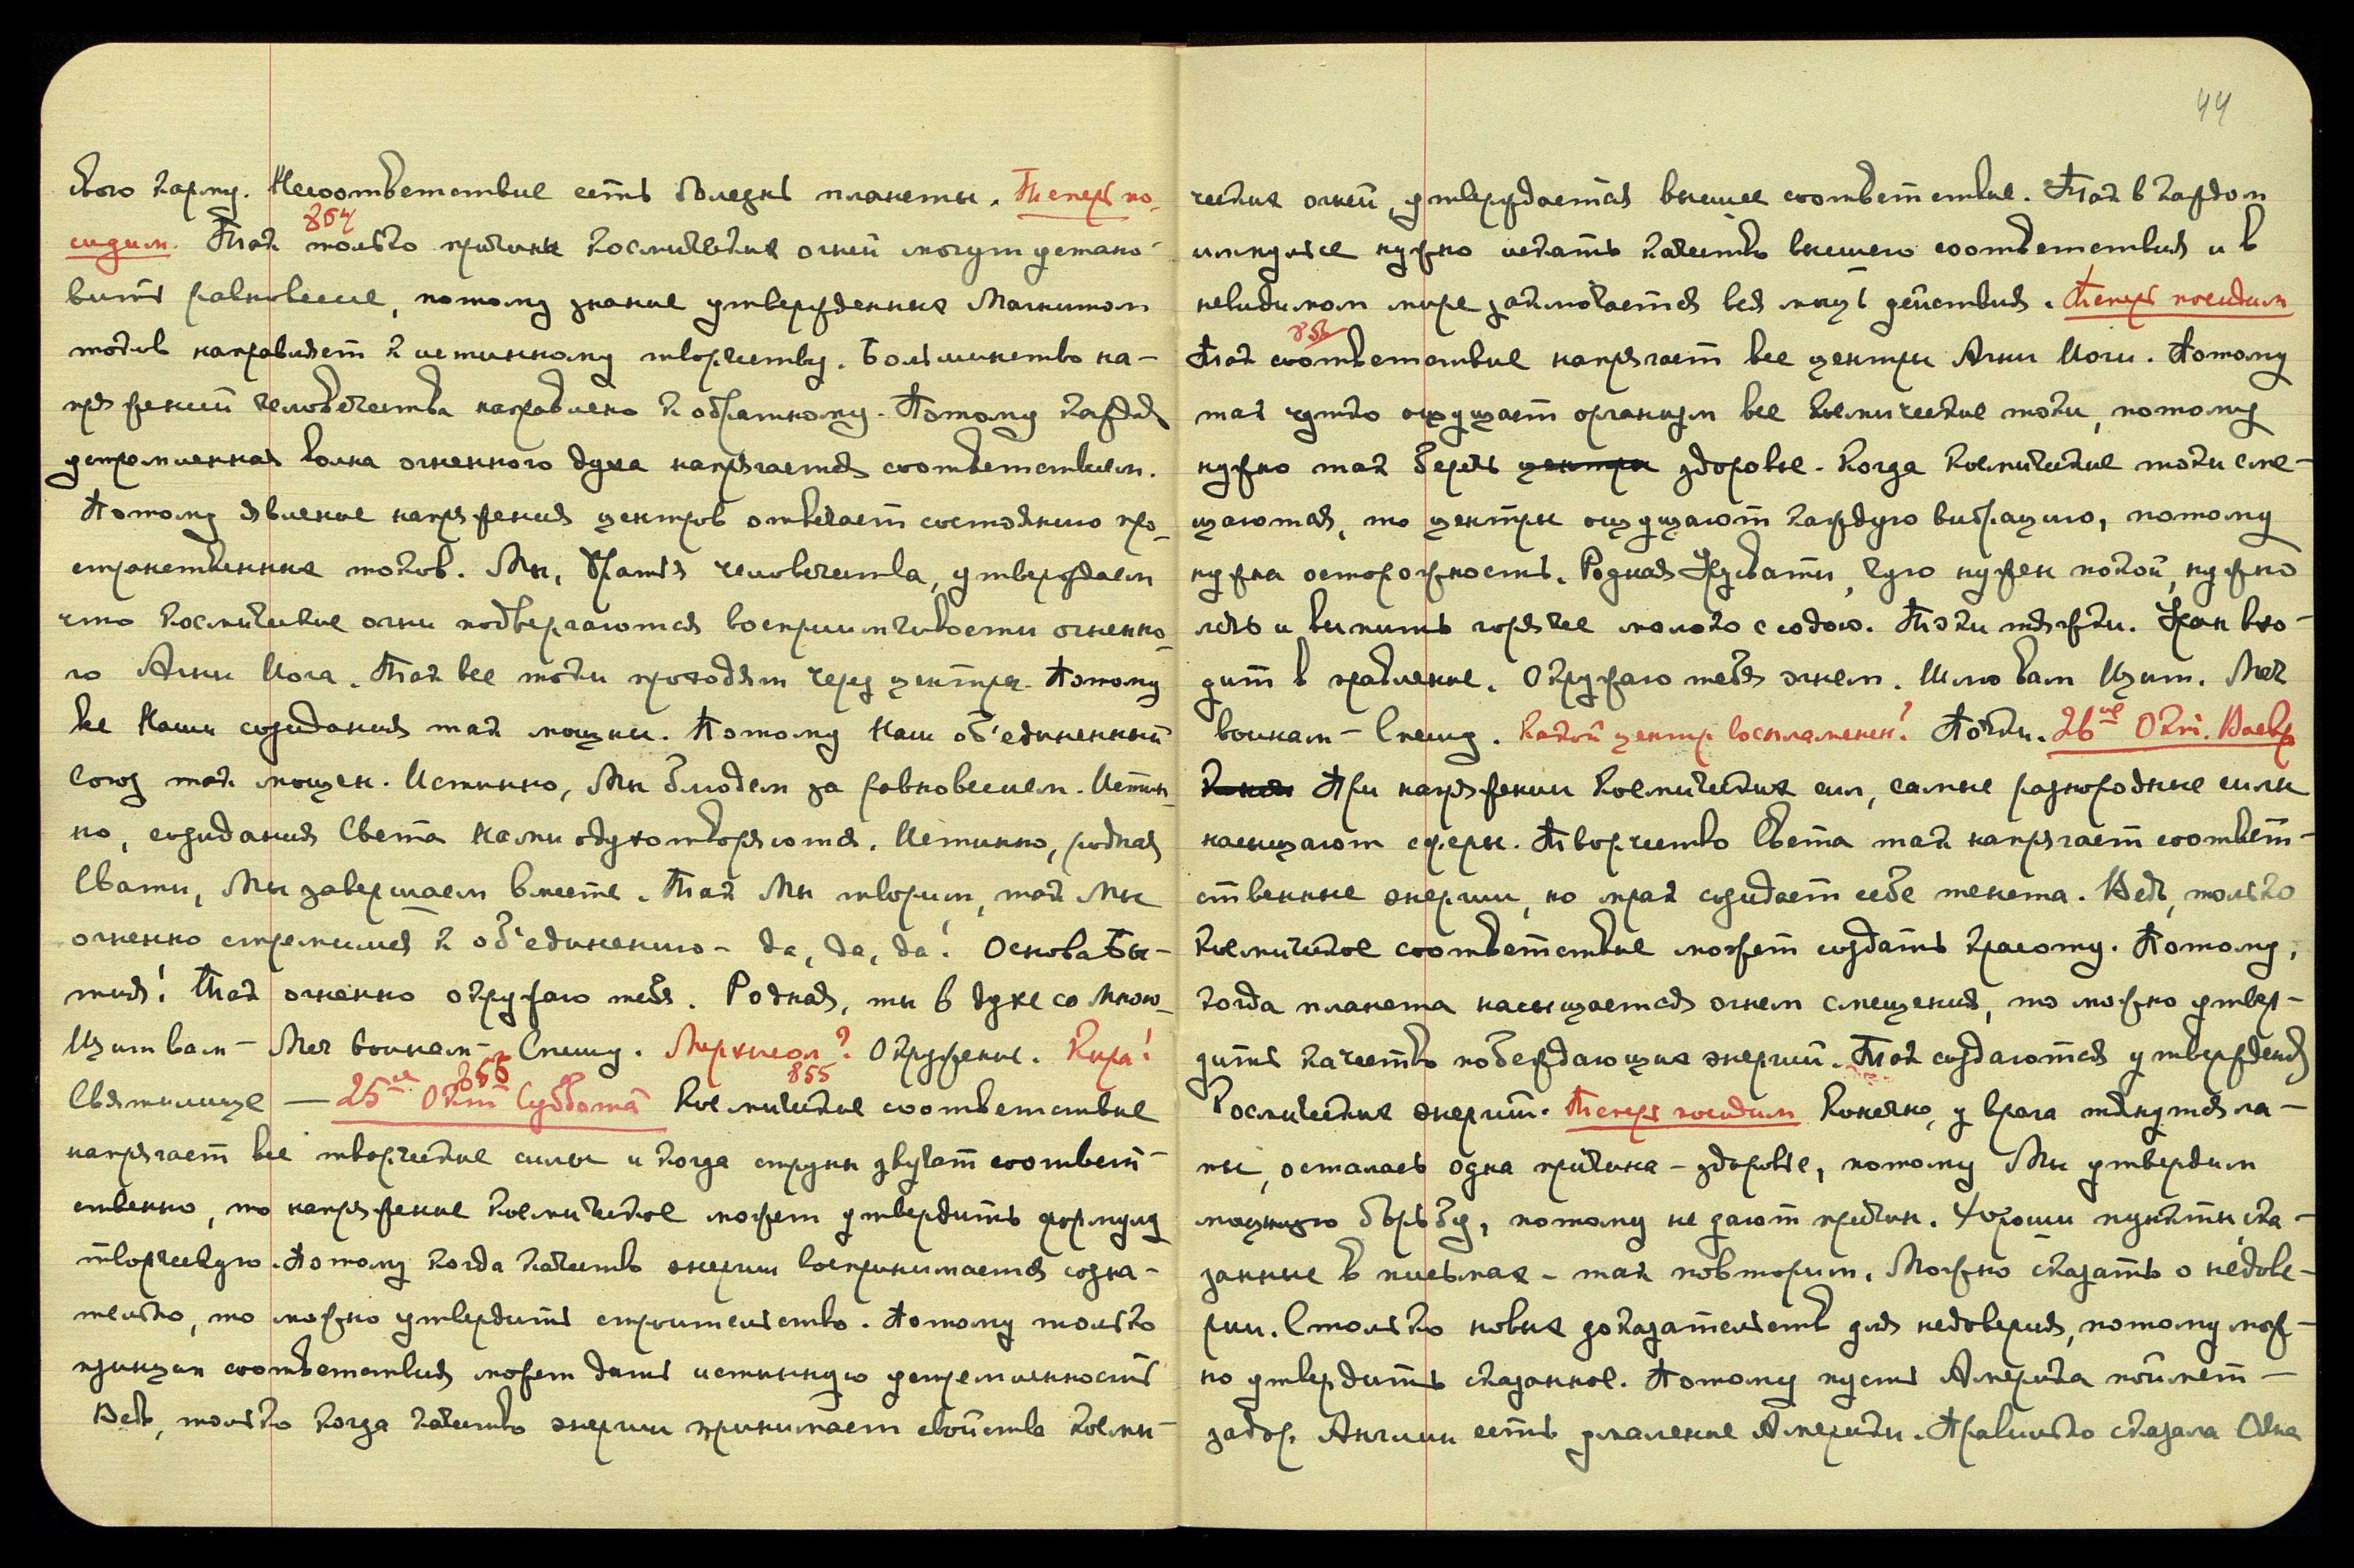 свою карму. Несоответствие есть болезнь планеты. Теперь по-
сидим. Так только причины космических огней могут устано-
854
вить равновесие, потому знание утвержденных Магнитом
токов направляет к истинному творчеству. Большинство на-
пряжений человечества направлено к обратному. Потому каждая
устремленная волна огненного духа напрягается соответствием.
Потому явление напряжения центров отвечает состоянию про-
странственных токов. Мы, Братья человечества, утверждаем
что космические огни подвергаются восприимчивости огненно-
го Агни Йога. Так все токи проходят через центры. Потому
все Наши созидания так мощны. Потому Наш об'единенный
Союз так мощен. Истинно, Мы блюдем за равновесием. Истин-
но, созидания Света Нами одухотворяются. Истинно, родная
Свати, Мы завершаем вместе. Так Мы творим, так Мы
огненно стремимся к об'единению – да, да, да! Основа Бы-
тия! Так огненно окружаю тебя. Родная, ты в духе со Мною –
Щит вам – Меч воинам – Спешу. Окружение. Кира!
855
Святилище — 25ое Окт Суббота Космическое соответствие
напрягает все творческие силы и когда струны звучат соответ-
ственно, то напряжение космическое может утвердить формулу
творческую. Потому когда качество энергии воспринимается созна-
тельно, то можно утвердить строительство. Потому только
принцип соответствия может дать истинную устремленность
Ведь, только когда качество энергии принимает свойства косми-
44
ческих огней, утверждается высшее соответствие. Так в каждом
импульсе нужно искать качество высшего соответствия и в
невидимом мире заключается вся мощь действия. Теперь посидим
856
Так соответствие напрягает все центры Агни Йоги. Потому
так чутко ощущает организм все космические токи, потому
нужно так беречь центры здоровье. Когда космические токи сме-
щаются, то центры ощущают каждую вибрацию, потому
нужна осторожность. Родная Урусвати, чую нужен покой, нужно
лечь и выпить горячее молоко с содою. Токи тяжки. Хан вхо-
дит в правление. Окружаю тебя огнем. Шлю вам Щит. Меч
воинам – Спешу. Какой центр воспламенен? Почки. 26ое Окт. Воскр
При напряжении космических сил, самые разнородные силы
насыщают сферы. Творчество Света так напрягает соответ-
ственные энергии, но мрак созидает себе тенета. Ведь, только
космическое соответствие может создать красоту. Потому,
когда планета насыщается огнем смещения, то можно утвер-
дить качество побеждающих энергий. Так создаются утвержденья
Космических энергий. Теперь посидим Конечно, у врага тянутся ла-
пы, осталась одна причина – здоровье, потому Мы утвердим
мощную борьбу, потому не дают причин. Хороши пункты, ска-
занные в письмах – так повторим. Можно сказать о недове-
рии. Столько новых доказательств для недоверия, потому мож-
но утвердить сказанное. Потому пусть Америка поймет –
задор Англии есть умаление Америки. Правильно сказала Одна